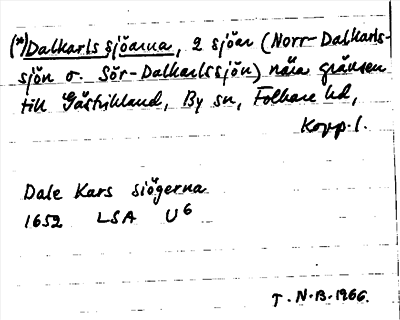 (*) Dalkarlssjöarna, 2 sjöar (Norr-Dalkarls-
sjön o. Sör-Dalkarlssjön) nära gränsen
till Gästrikland, By sn, Folkare hd,
Kopp. l.
Dale Kars siögerna
1652 LSA U6
T.N.B. 1966.